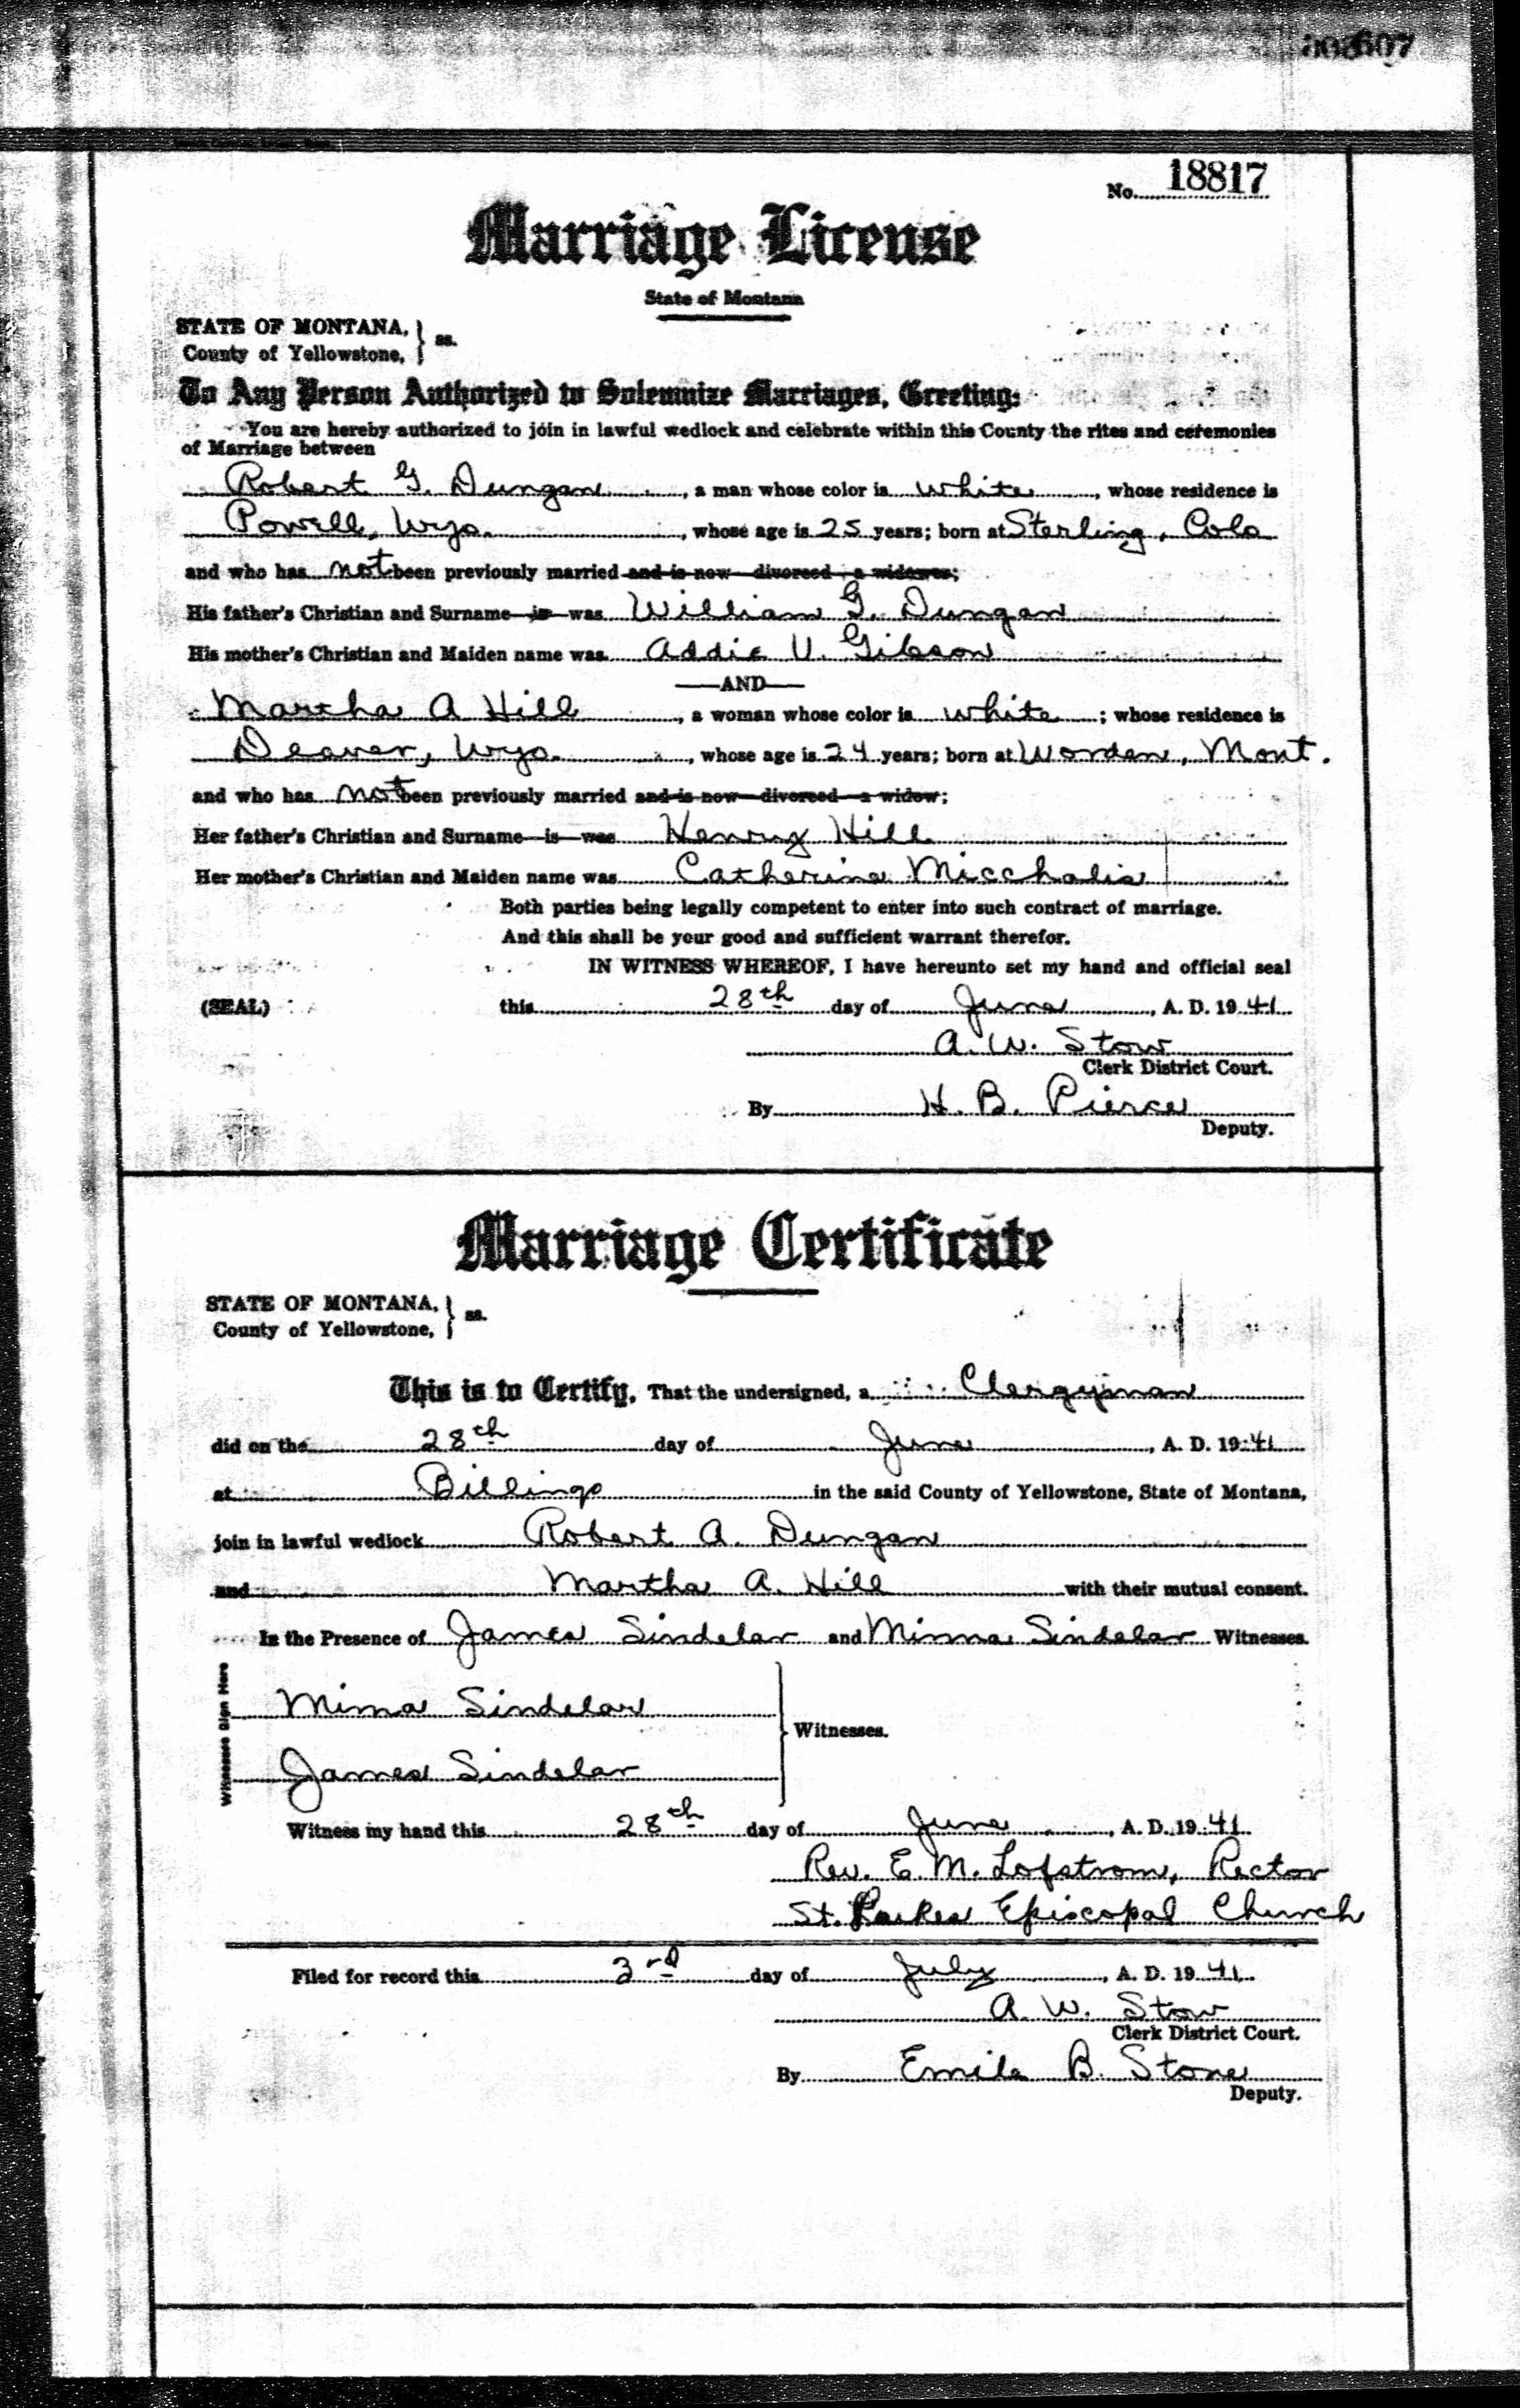 No. 18817
Marriage License
State of Montana
STATE OF MONTANA, } ss.
County of Yellowstone,
To Any Person Authorized to Solemnize Marriages, Greeting:
You are hereby authorized to join in lawful wedlock and celebrate within this County the rites and ceremonies
of Marriage between
Robert G. Dungan, a man whose color is white, whose residence is
Powell, Wyo., whose age is 25 years; born at Sterling, Colo
and who has not been previously married and is now divorced a widower;
His father's Christian and Surname is was William G. Dungan
His mother's Christian and Maiden name was Addie V. Gibson
AND
Martha A Hill, a woman whose color is white; whose residence is
Deaver, Wyo., whose age is 24 years; born at Worden, Mont.
and who has not been previously married and is now divorced a widow;
Her father's Christian and Surname is was Henry Hill
Her mother's Christian and Maiden name was Catherine Micchalis
Both parties being legally competent to enter into such contract of marriage.
And this shall be your good and sufficient warrant therefor.
IN WITNESS WHEREOF, I have hereunto set my hand and official seal
(SEAL) this 28th day of June, A. D. 1941
A. W. Stow
Clerk District Court.
By H. B. Pierce
Deputy.
Marriage Certificate
STATE OF MONTANA, } ss.
County of Yellowstone,
This is to Certify, That the undersigned, a Clergyman
did on the 28th day of June, A. D. 1941
at Billings in the said County of Yellowstone, State of Montana,
join in lawful wedlock Robert A. Dungan
and Martha A. Hill with their mutual consent.
In the Presence of James Sindelar and Minna Sindelar Witnesses.
Witnesses Sign Here
Minna Sindelar
Witnesses.
James Sindelar
Witness my hand this 28th day of June, A. D. 1941
Rev. E. M. Lofstrom, Rector
St. Lukes Episcopal Church
Filed for record this 3rd day of July, A. D. 1941
A. W. Stow
Clerk District Court.
By Emile B. Stone
Deputy.